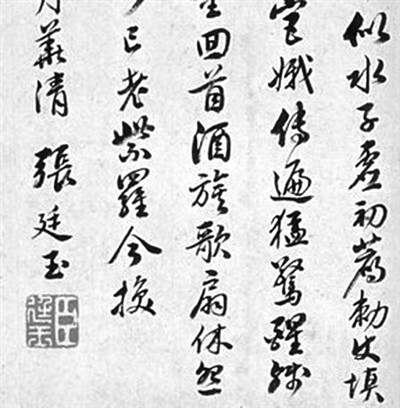 似水子虛初薦勅填
宮娥傳遍猛驚醒殘
回首酒旗歌扇休怨
已老紫羅今換
月華清 張廷玉
臣廷玉